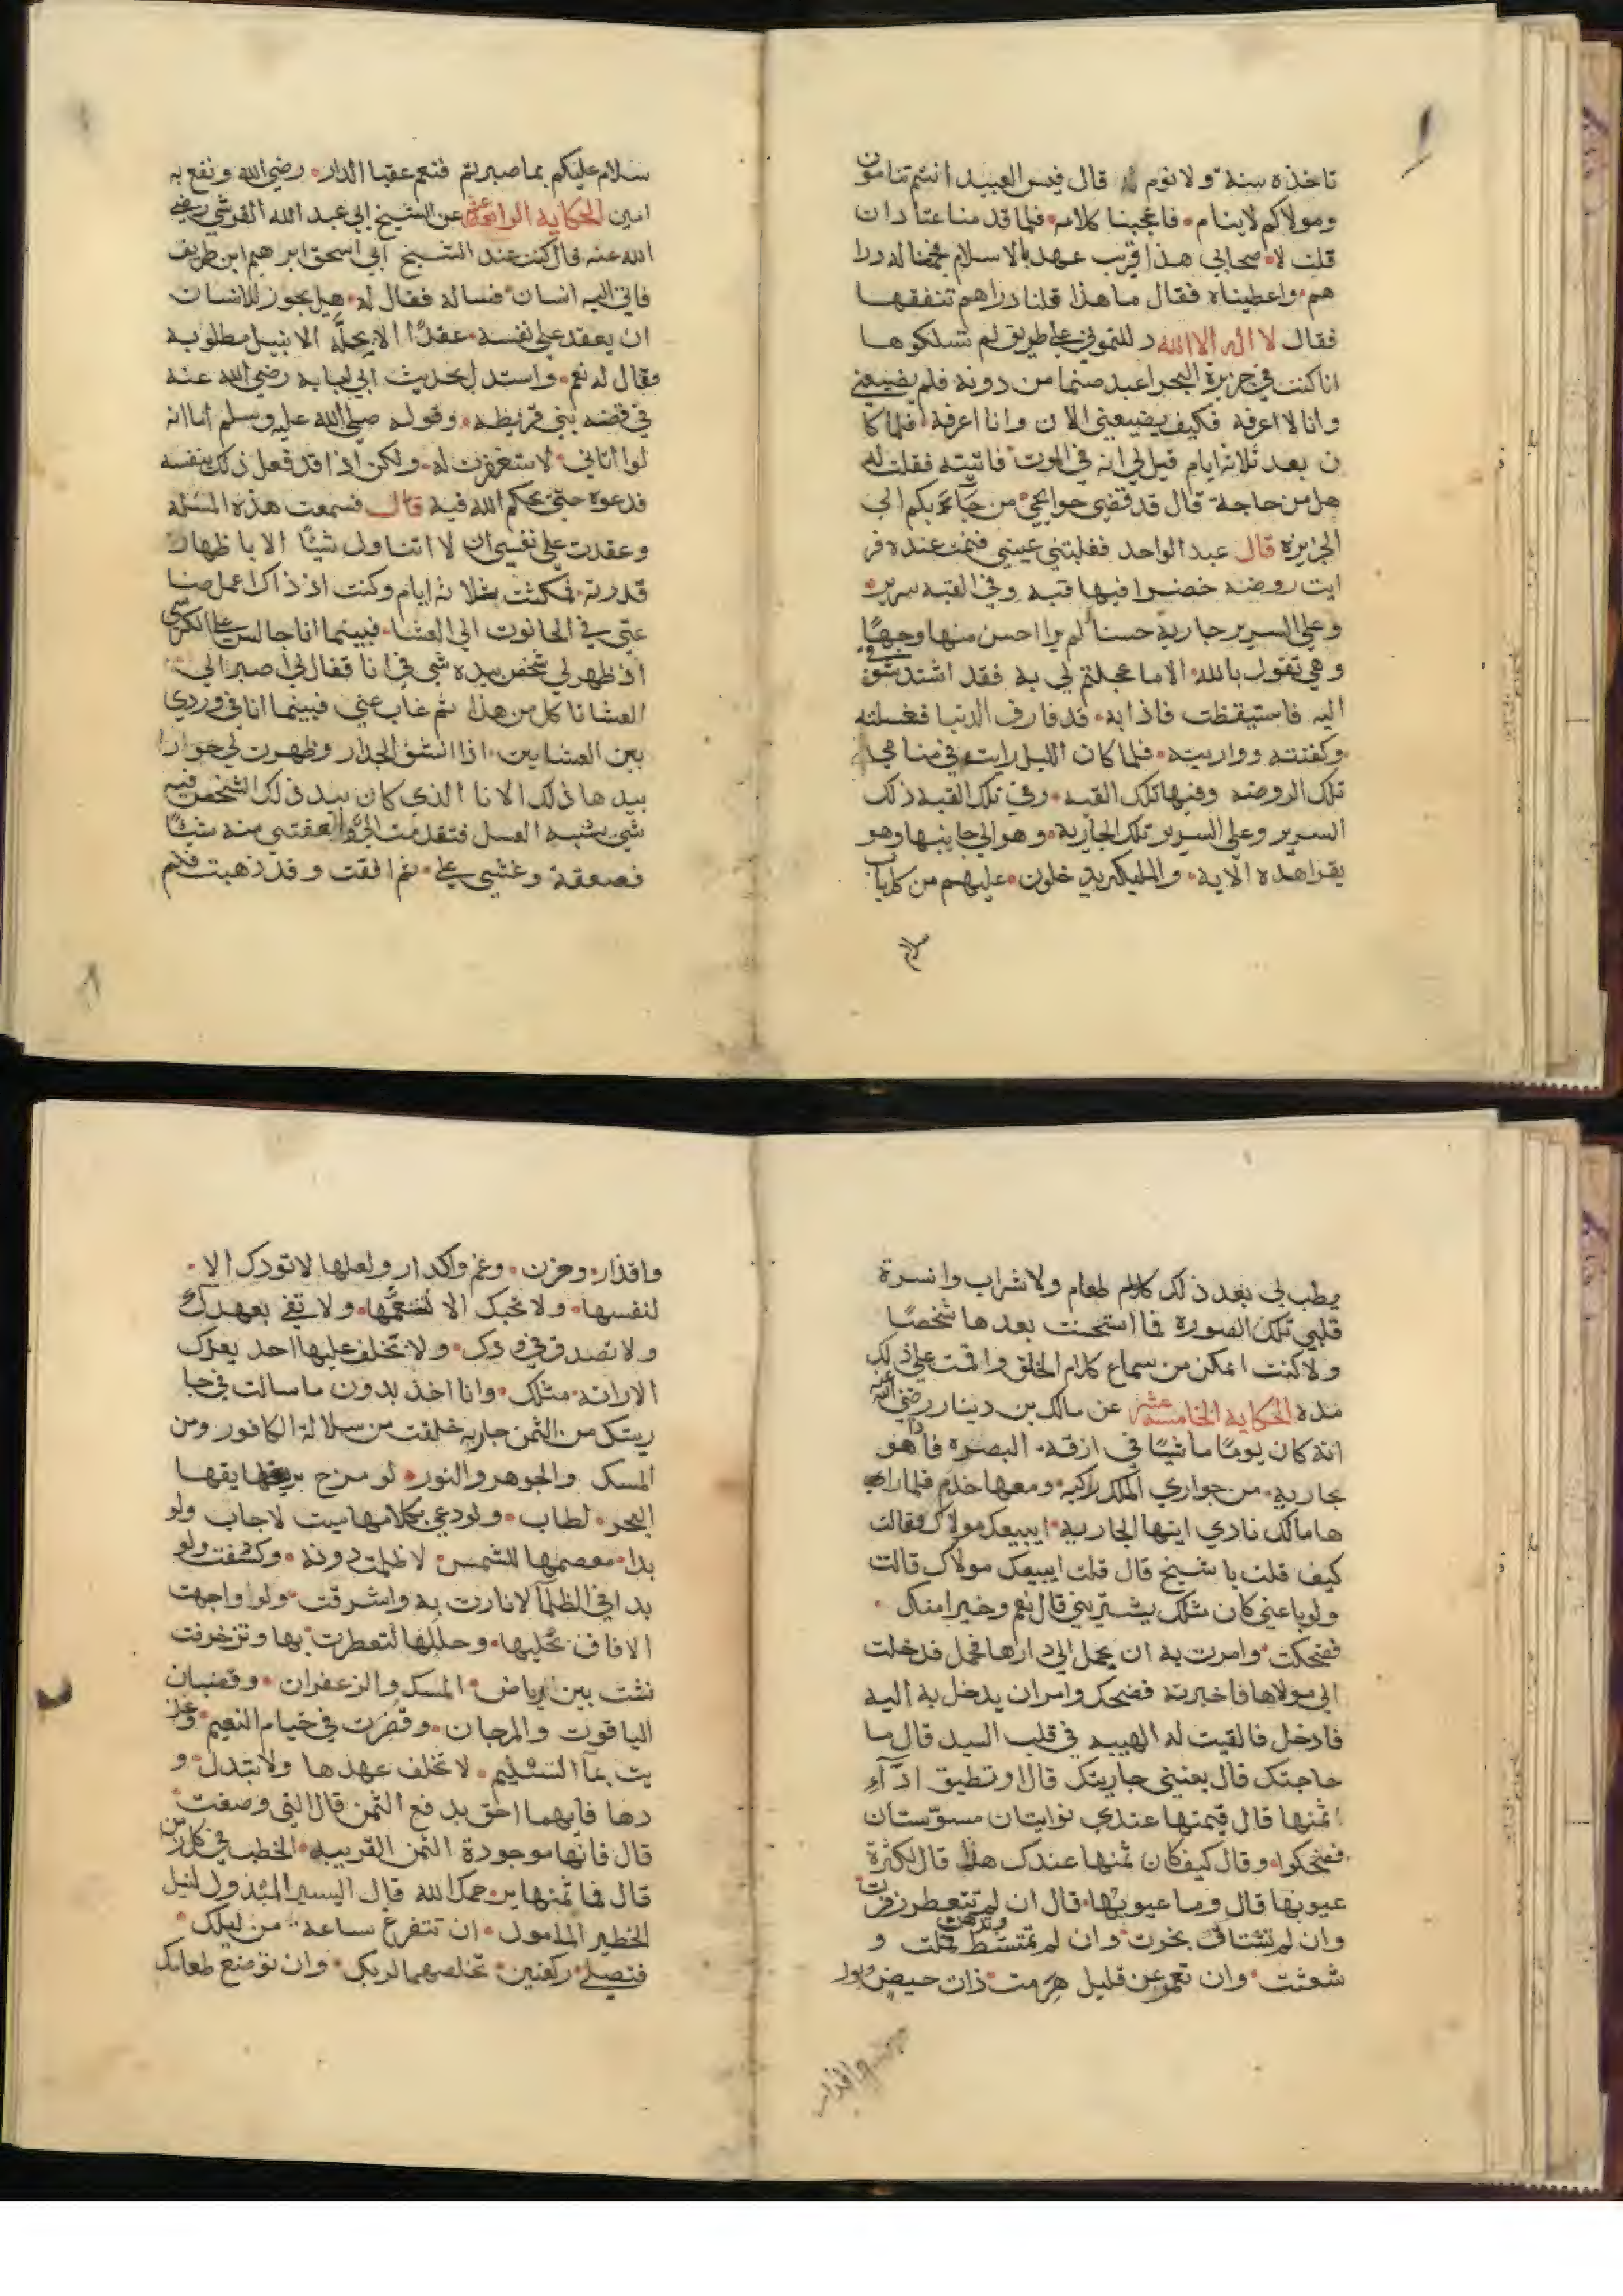 تاخذه سنة ولا نوم قال فبس العبيد انتم تنامون
ومولاكم لا ينام فاعجبنا كلامه فلما قدمنا عبادان
قلت لاصحابي هذا قريب عهد بالاسلام فجمعنا له درا
هم واعطيناه فقال ما هذا قلنا دراهم تنفقها
فقال لا اله الا الله دللتموني على طريق لم تسلكوها
انا كنت في جزيرة البحر اعبد صنما من دونه فلم يضيعني
وانا لا اعرفه فكيف يضيعني الان وانا اعرفه فلما كا
ن بعد ثلاثه ايام قيل لي انه في الموت فاتيته فقلت له
هل من حاجة قال قد قضي حوايجي من جآء بكم الى
الجزيره قال عبد الواحد فغلبتني عيني فنمت عنده فر
ايت روضه خضرا فيها قبه وفي القبه سرير
وعلى السرير جارية حسنا لم يرا احسن منها وجهًا
وهي تقول بالله الا ما عجلتم لي به فقد اشتد شوقي
اليه فاستيقظت فاذا به قد فارق الدنيا فغسلته
وكفنته وواريته فلما كان الليل رايت في منامي
تلك الروضه وفيها تلك القبه وفي تلك القبه ذلك
السرير وعلى السرير تلك الجارية وهو الى جانبها وهو
يقرا هذه الآية والمليكة يدخلون عليهم من كل باب
سلام
سلام عليكم بما صبرتم فنعم عقبا الدار رضي الله ونفع به
امين الحكاية الرابعة عشر عن الشيخ ابي عبد الله القرشي رضي
الله عنه قال كنت عند الشيخ ابي اسحق ابرهيم ابن طريف
فاتى اليه انسان فساله فقال له هل يجوز للانسان
ان يعقد على نفسه عقدًا الا يحله الا بنيل مطلوبه
وقال له نعم واستدل بحديث ابي لبابه رضي الله عنه
في قضه بني قريظه وقوله صلى الله عليه وسلم اما انه
لو اتاني لاستغفرت له ولكن اذا قد فعل ذلك بنفسه
فدعوه حتى يحكم الله فيه قال فسمعت هذه المسئله
وعقدت على نفسي ان لا اتناول شيئًا الا باظهار
قدرته فمكثت ثلاثه ايام وكنت اذ ذاك اعمل صنا
عتي في الحانوت الى العشا فبينما انا جالس على الكرسي
اذ ظهر لي شخص بيده شي في انا فقال لي اصبر الى
العشا تاكل من هذا ثم غاب عني فبينما انا في وردي
بين العشايين اذا انشق الجدار وظهرت لي حورا
بيدها ذلك الانا الذي كان بيد ذلك الشخص فيه
شي يشبه العسل فتقدمت الي والعقتني منه شيئًا
فصعقة وغشي علي ثم افقت وقد ذهبت فلم
يطب لي بعد ذلك كلام طعام ولا شراب وانسرة
قلبي تلك الصوره فما استحسنت بعدها شخصًا
ولا كنت اتمكن من سماع كلام الخلق واقمت على ذلك
مده الحكاية الخامسة عشر عن مالك بن دينار رضي الله عنه
انه كان يومًا ماشيًا في ازقه البصره فاذا هو
بجارية من جواري الملك راكبه ومعها خدم فلما راى
ها مالك نادى ايتها الجارية ايبيعك مولاك فقالت
كيف قلت يا شيخ قال قلت ايبيعك مولاك قالت
ولو باعني كان مثلك يشتريني قال نعم وخيرا منك
فضحكت وامرت به ان يحمل الى دارها فحمل فدخلت
الى مولاها فاخبرته فضحك وامر ان يدخل به اليه
فادخل فالقيت له الهيبه في قلب السيد قال ما
حاجتك قال بعنيني جاريتك قال او تطيق ادّآء
اثمنها قال قيمتها عندي نوايتان مسوستان
فضحكوا وقال كيف كان ثمنها عندك هذا قال لكثرة
عيوبها قال وما عيوبها قال ان لم تتعطر زفرت
وان لم تستاك بخرت وان لم تمتشط وتدهن قملت و
شعثت وان تعمر عن قليل هرمت ذات حيض وبول
واقذار
واقذار وحزن وغم واكدار ولعلها لا تودك الا
لنفسها ولا تحبك الا لتنعمها ولا تفي بعهدك
ولا تصدق في ودك ولا تخلف عليها احد بعدك
الا راته مثلك وانا اخذ بدون ما سالت في جا
ريتك من الثمن جارية خلقت من سلالة الكافور ومن
المسك والجوهر والنور لو مزج بريقها
البحر لطاب ولو دعي بكلامها ميت لاجاب ولو
بدا معصمها للشمس لاظلمت دونه وكشفت ولو
بدا في الظلمآ لانارت به واشرقت ولو واجهت
الافاق بحليها وحللها لتعطرت بها وتزخرفت
نشت بين رياض المسك والزعفران وقضبان
الياقوت والمرجان وقصرت في خيام النعيم وغذ
يت بمآ التسنيم لا تخلف عهدها ولا يتبدل و
دها فايهما احق بدفع الثمن قال التي وصفت
قال فانها موجودة الثمن القريبه الخطب في كل زمن
قال فما ثمنها يرحمك الله قال اليسير المبذول لنيل
الخطير المامول ان تتفرغ ساعة من ليلك
فتصلي ركعتين تخلصهما لربك وان توضع طعامك